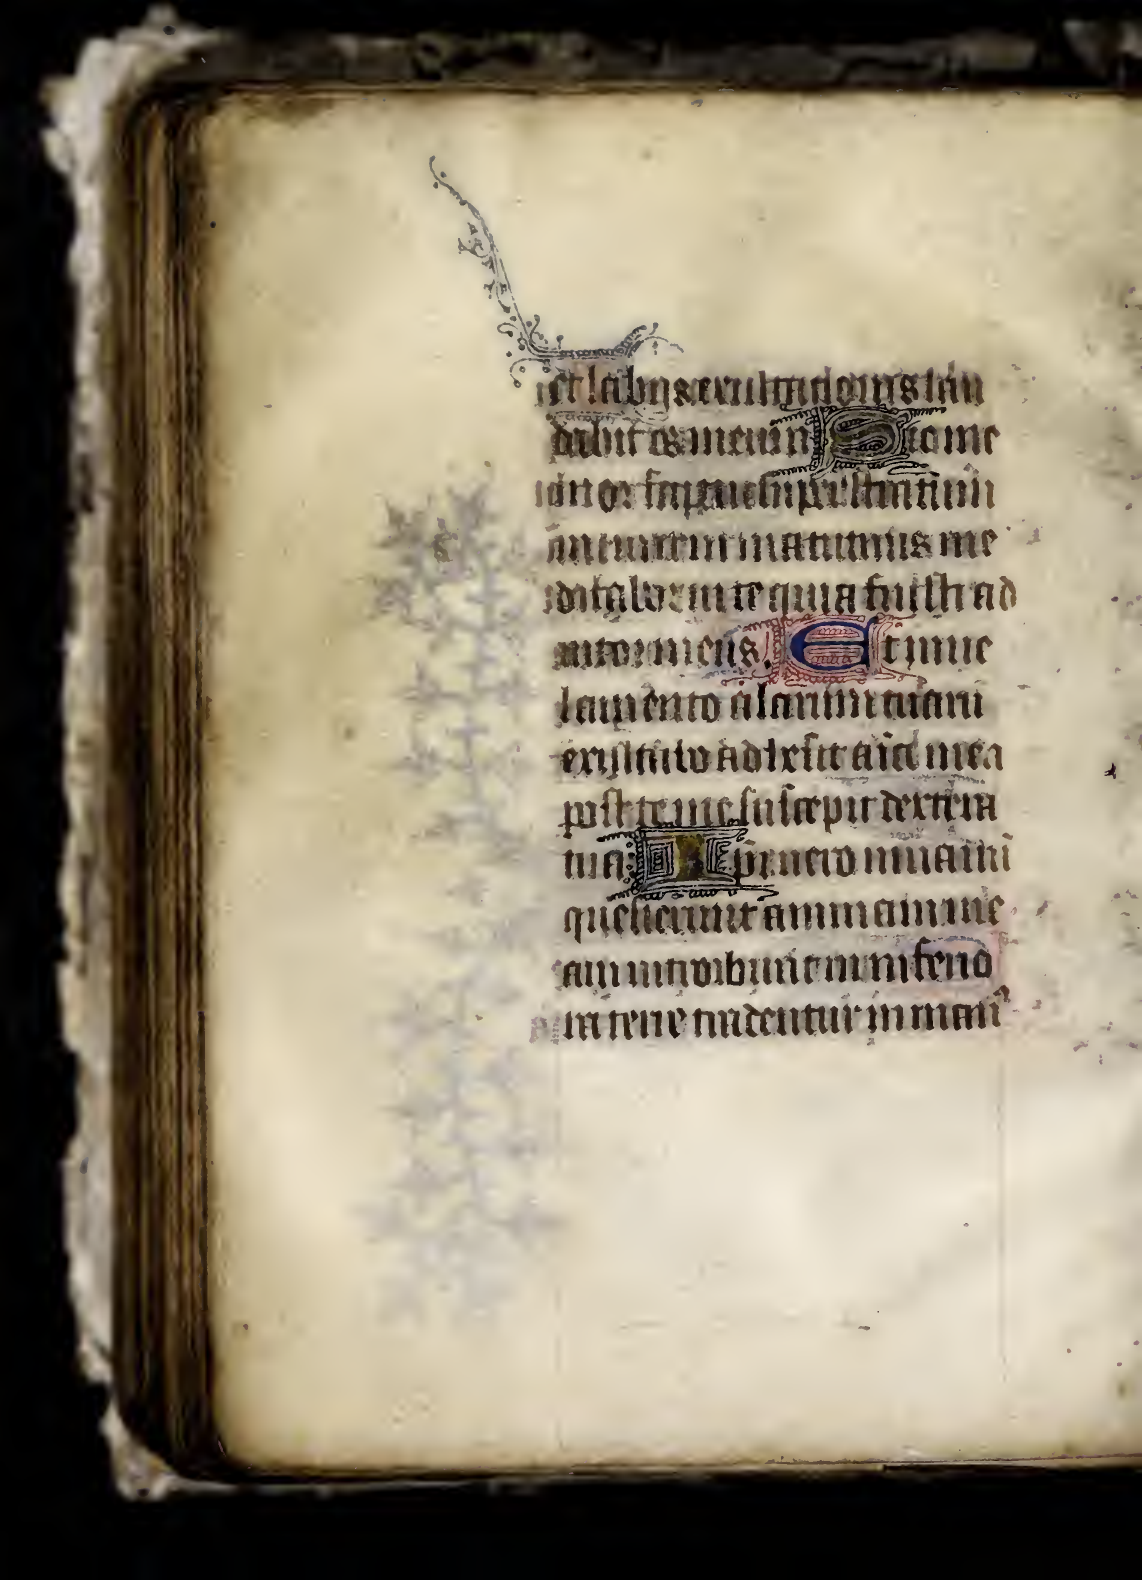 et labijs exultationis lau
dabit os meum Si c me
mor fui tui super stratum
meum in matutinis me
ditabor in te quia fuisti ad
iutor meus. Et in ue
lamento alarum tuarū
exultabo adhesit aīa mea
post te me suscepit dextera
tua Ip̄i uero in uanū
quesierunt animam me
am introibunt in inferio
ra terre tradentur in man⁹